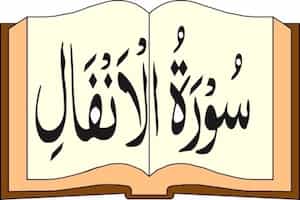 سُوْرَةُ الْاَنْفَالِ